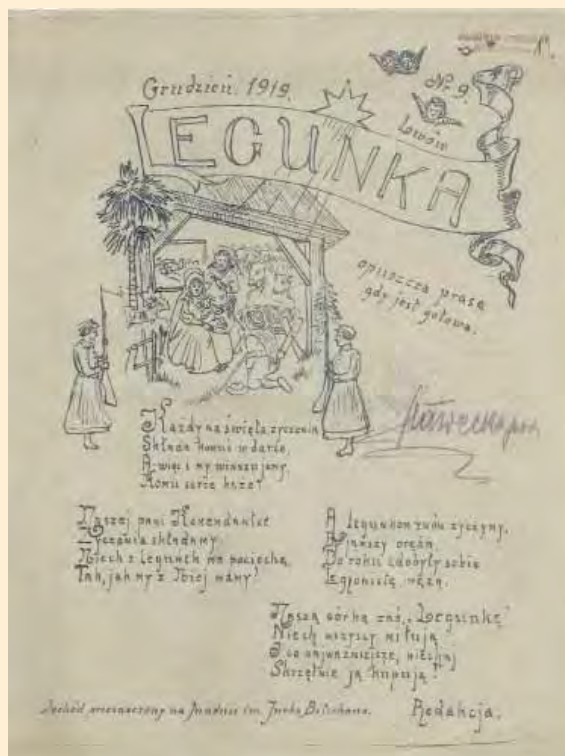 Grudzień. 1919.
Nr. 9.
Lwów
LEGUNKA
opuszcza prasę
gdy jest gotowa.
Każdy na święta życzenia
Składa komuś w darze,
A więc i my winszujemy,
Komu serce każe!
Naszej pani Komendantce
Życzenia składamy:
Niech z Legunek ma pociechę,
Tak, jak my z Niej mamy!
A Legunkom znów życzymy,
By
Do roku zdobyły sobie
Legjonistę męża.
Naszą córkę zaś, "Legunkę"
Niech wszyscy miłują
I co najważniejsze, niechaj
Skrzętnie ją kupują!
Dochód przeznaczony na fundusz im. Jurka Bitschana.
Redakcja.